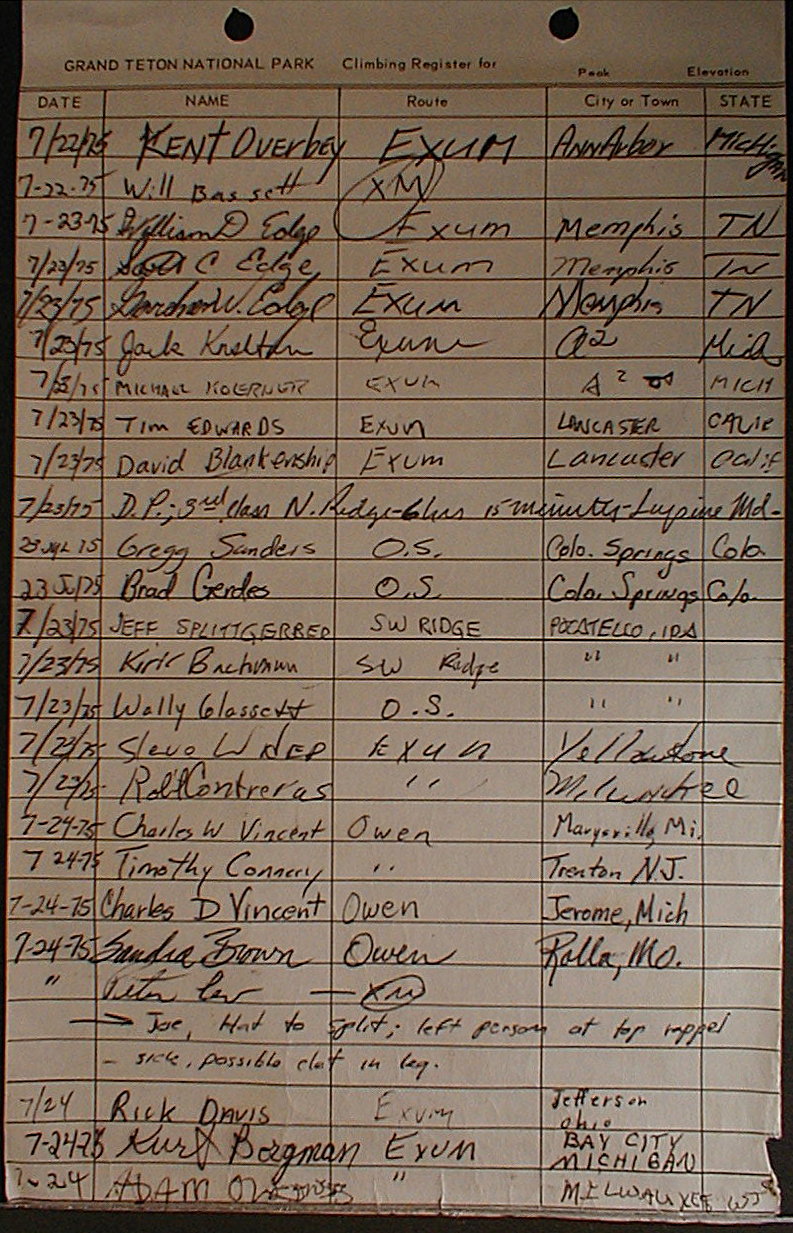 GRAND TETON NATIONAL PARK Climbing Register for Peak Elevation
DATE NAME Route City or Town STATE
7/22/75 KENT Overbey EXUM Ann Arbor Michigan
7-22-75 Will Bassett XM
7-23-75 William D Edge Exum Memphis TN
7/23/75 Scott C Edge Exum Memphis TN
7/23/75 W. Edge Exum Memphis TN
7/23/75 Jack Exum A2 Mich
7/23/75 MICHAEL KOERNER EXUM A2 MICH
7/23/75 Tim EDWARDS EXUM LANCASTER CALIF
7/23/75 David Blankenship Exum Lancaster Calif
7/23/75 D.P.; 3rd class N. Ridge-6hrs 15 minutes-Lupine Md-
23 JUL 75 Gregg Sanders O.S. Colo. Springs Colo.
23 Jul 75 Brad Gerdes O.S. Colo. Springs Colo.
7/23/75 JEFF SPLITTGERRED SW RIDGE POCATELLO, IDA
7/23/75 Kirk Bachmann SW Ridge " "
7/23/75 Wally O.S. " "
7/23/75 EXUM Yellowstone
7/23/75 Rob't Contreras "
7-24-75 Charles W Vincent Owen Marysville, Mi.
7 24-75 Timothy Connery " Trenton N.J.
7-24-75 Charles D Vincent Owen Jerome, Mich
7-24-75 Sandra Brown Owen Rolla, Mo.
" Peter Lev — XM
→ Joe, Had to split; left person at top rappel
- sick, possible clot in leg.
7/24 RICK DAVIS Exum Jefferson Ohio
7-24-75 Kurt Bergman EXUM BAY CITY MICHIGAN
7-24 ADAM " MILWAUKEE WIS